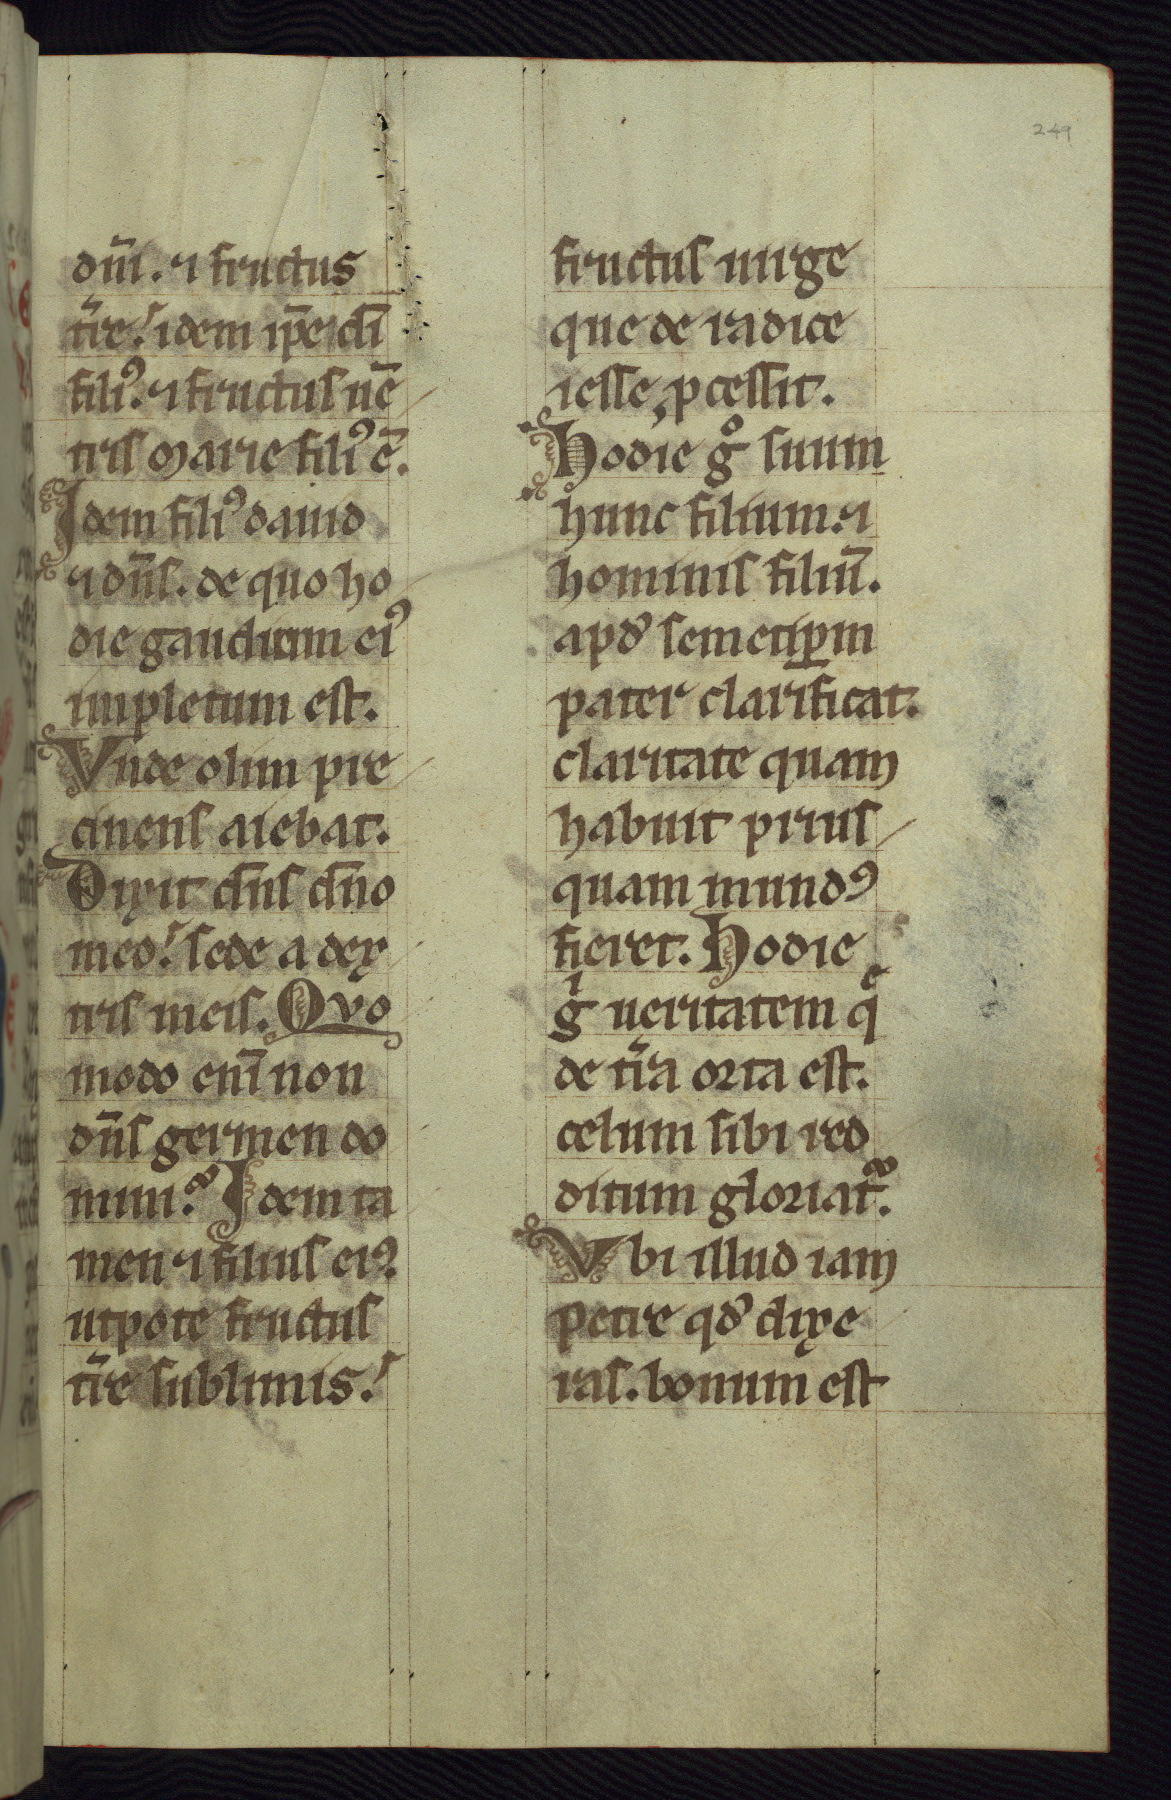 249
dn̄i. ⁊ fructus
t̄re! idem ip̄e dn̄i
fili᾿. ⁊ fructus uē
tris Marie fili᾿ ē.
Idem fili᾿ dauid
⁊ dn̄s. de quo ho
die gaudium ei᾿
impletum est.
Vnde olim pre
cinens aiebat.
Dixit dn̄s dn̄o
meo! sede a dex
tris meis. Quo
modo enī non
dn̄s germen do
mini? Idem ta
men ⁊ filius ei᾿.
utpote fructus
t̄re sublimis!
fructus uirge
que de radice
iesse ꝓcessit.
Hodie gͦ suum
hunc filium. ⁊
hominis filiū.
apd᾿ semetip̄m
pater clarificat.
claritate quam
habuit prius
quam mundꝯ
fieret. Hodie
gͥ ueritatem qͤ
de t̄ra orta est.
celum sibi red
ditum gloriat᷑.
Vbi illud iam
petre qd᾿ dixe
ras. bonum est